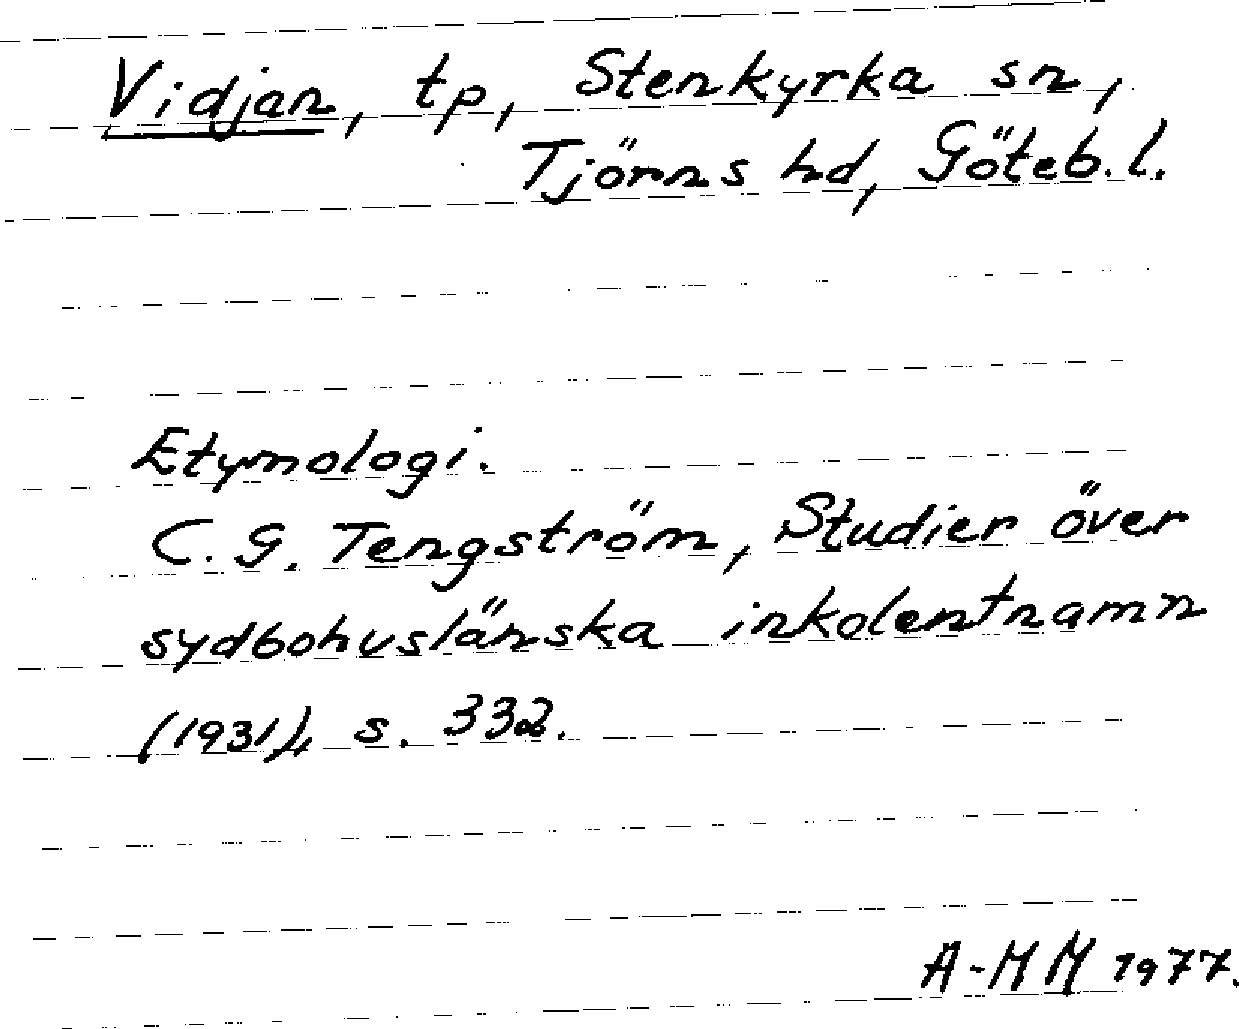 Vidjan, tp, Stenkyrka sn,
Tjörns hd, Göteb. l.
Etymologi.
C. G. Tengström, Studier över
sydbohuslänska inkolentnamn
(1931), s. 332.
A-MM 1977.